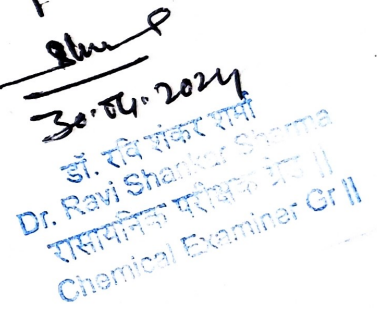 30.04.2024
डॉ. रवि शंकर शर्मा
Dr. Ravi Shankar Sharma
रासायनिक परीक्षक ग्रेड II
Chemical Examiner Gr II